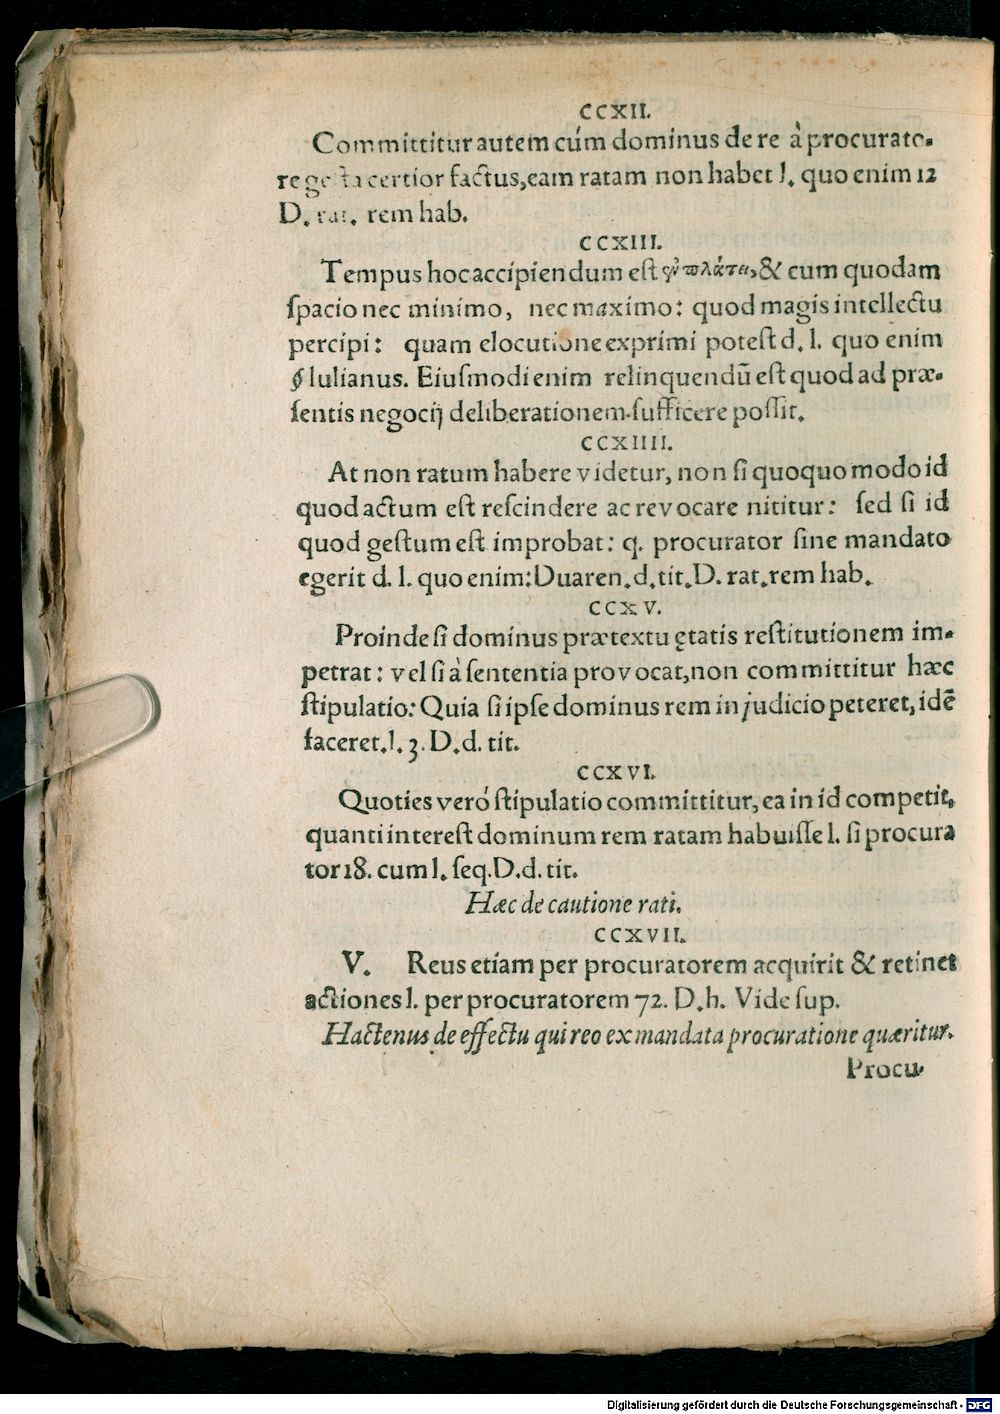 CCXII.
Committitur autem cúm dominus de re à procurato-
re gesta certior factus, eam ratam non habet l. quo enim 12
D. rat. rem hab.
CCXIII.
Tempus hoc accipiendum est ἐν πλάτει, & cum quodam
ſpacio nec minimo, nec maximo: quod magis intellectu
percipi: quam elocutione exprimi poteſt d. l. quo enim
§ Iulianus. Eiuſmodi enim relinquendū eſt quod ad præ-
ſentis negocij deliberationem ſufficere poſſit.
CCXIIII.
At non ratum habere videtur, non ſi quoquo modo id
quod actum eſt reſcindere ac revocare nititur: ſed ſi id
quod geſtum eſt improbat: q. procurator ſine mandato
egerit d. l. quo enim: Duaren. d. tit. D. rat. rem hab.
CCXV.
Proinde ſi dominus prætextu ętatis reſtitutionem im-
petrat: vel ſi à ſententia provocat, non committitur hæc
ſtipulatio: Quia ſi ipſe dominus rem in judicio peteret, idē
faceret. l. 3. D. d. tit.
CCXVI.
Quoties veró ſtipulatio committitur, ea in id competit,
quanti intereſt dominum rem ratam habuiſſe l. ſi procura
tor 18. cum l. ſeq. D. d. tit.
Hæc de cautione rati.
CCXVII.
V. Reus etiam per procuratorem acquirit & retinet
actiones l. per procuratorem 72. D. h. Vide ſup.
Hactenus de effectu qui reo ex mandata procuratione quæritur.
Procu-
Digitalisierung gefördert durch die Deutsche Forschungsgemeinschaft - DFG